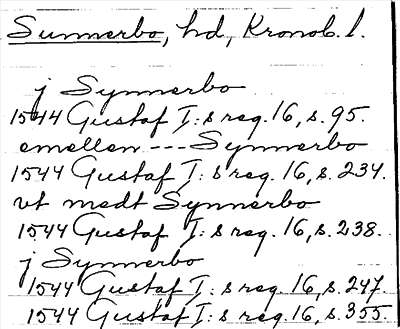 Sunnerbo, hd, Kronob. l.
j Synnerbo
1544 Gustaf I:s reg. 16, s. 95.
emellen --- Synnerbo
1544 Gustaf I:s reg. 16, s. 234.
vt medt Synnerbo
1544 Gustaf I:s reg. 16, s. 238.
j Synnerbo
1544 Gustaf I:s reg. 16, s. 247.
1544 Gustaf I:s reg. 16, s. 355.